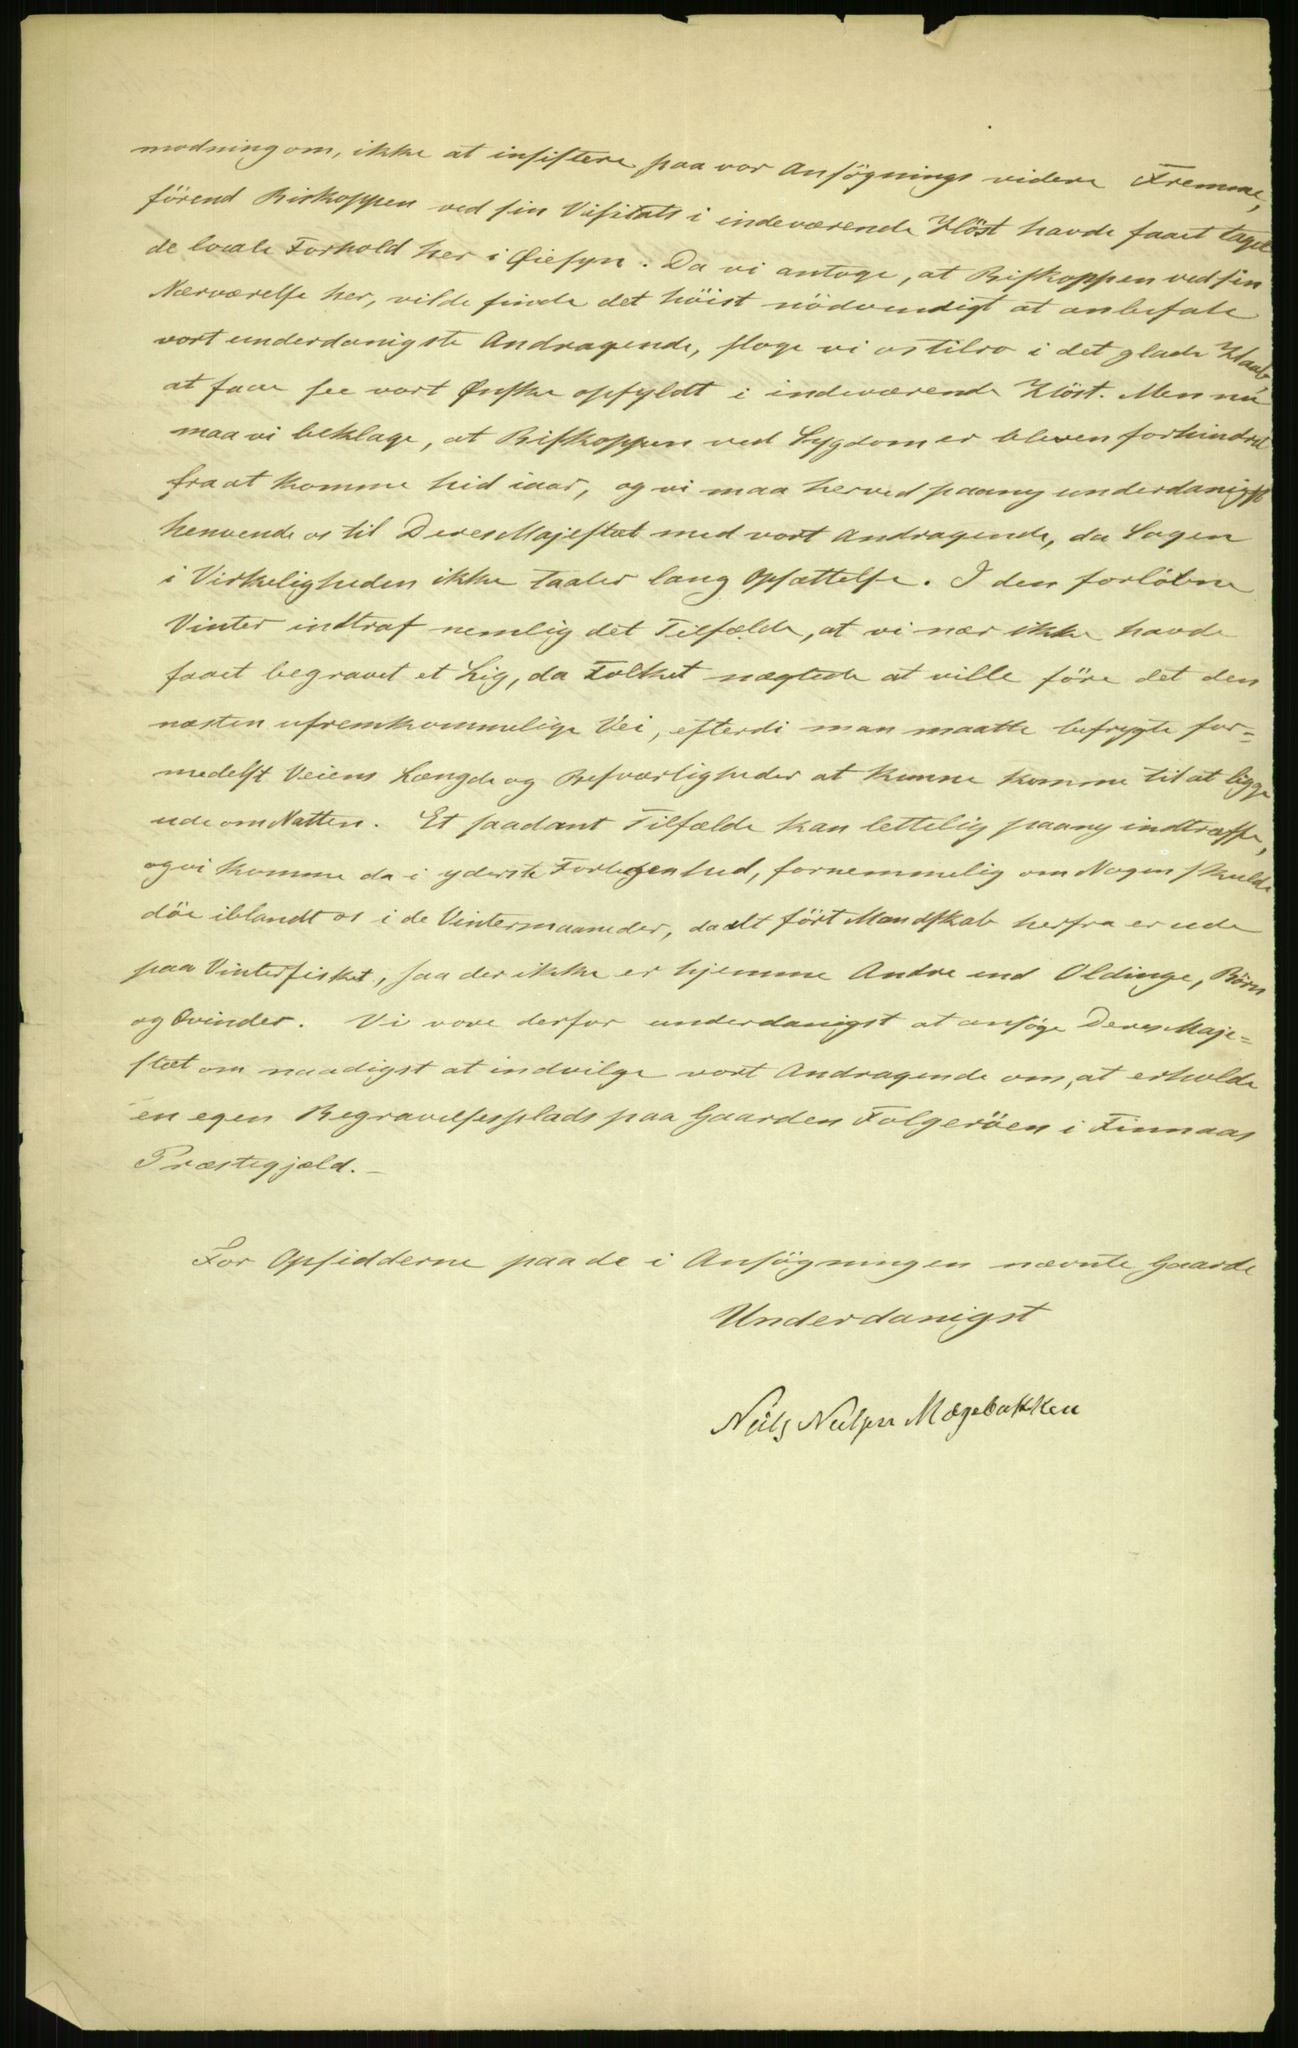 modning om, ikke at insistere paa vor Ansøgnings videre Fremme,
förend Biskoppen ved sin Visitats i indeværende Höst havde faaet taget
de locale Forhold her i Øiesyn. Da vi antoge, at Biskoppen ved sin
Nærværelse her, vilde finde det höist nödvendigt at anbefale
vort underdanigste Andragende, sloge vi os tilro i det glade Haab
at faae see vort Ønske opfyldt i indeværende Höst. Men nu
maa vi beklage, at Biskoppen ved Sygdom er bleven forhindret
fra at komme hid iaar, og vi maa herved paany underdanigst
henvende os til Deres Majestæt med vort Andragende, da Sagen
i Virkeligheden ikke taaler lang Opsættelse. I den forløbne
Vinter indtraf nemlig det Tilfælde, at vi nær ikke havde
faaet begravet et Lig, da Folket nægtede at ville före det den
næsten ufremkommelige Vei, efterdi man maatte befrygte for=
medelst Veiens Længde og Besværligheder at kunne komme til at ligge
ude om Natten. Et saadant Tilfælde kan lettelig paany indtræffe,
og vi komme da i yderste Forlegenhed, fornemmelig om Nogen skulde
döe iblandt os i de Vintermaaneder, da alt fört Mandskab herfra er ude
paa Vinterfisket, saa der ikke er hjemme Andre end Oldinge, Börn
og Qvinder. Vi vove derfor underdanigst at ansøge Deres Maje=
stæt om naadigst at indvilge vort Andragende om, at erholde
en egen Begravelsesplads paa Gaarden Folgeröen i Finnaas
Præstegjæld. —
For Opsidderne paa de i Ansøgningen nævnte Gaarde
Underdanigst
Nils Nilsen Mægebakken